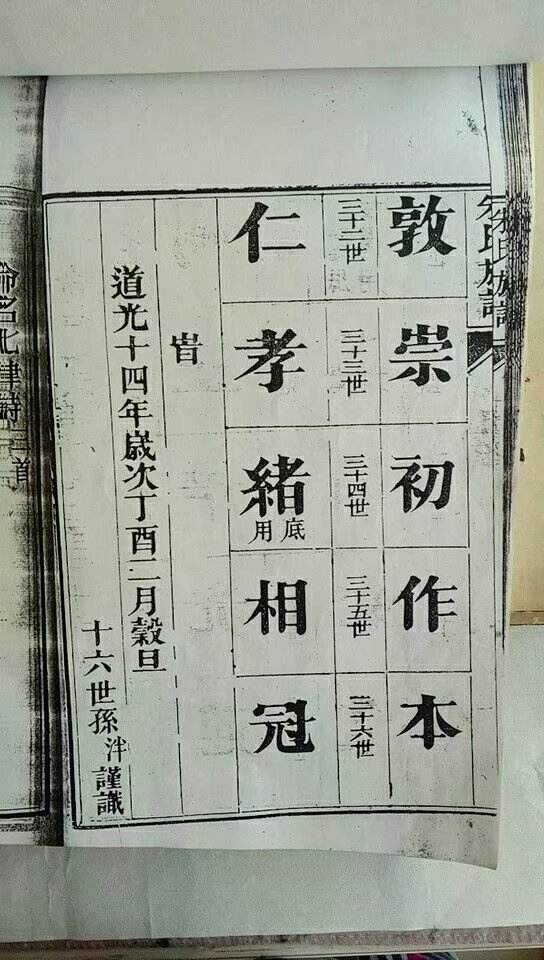 氏族譜
敦崇初作本
三十二世 三十三世 三十四世 三十五世 三十六世
仁孝緒底用相冠
旹
道光十四年歲次丁酉二月穀旦
十六世孫泮謹識